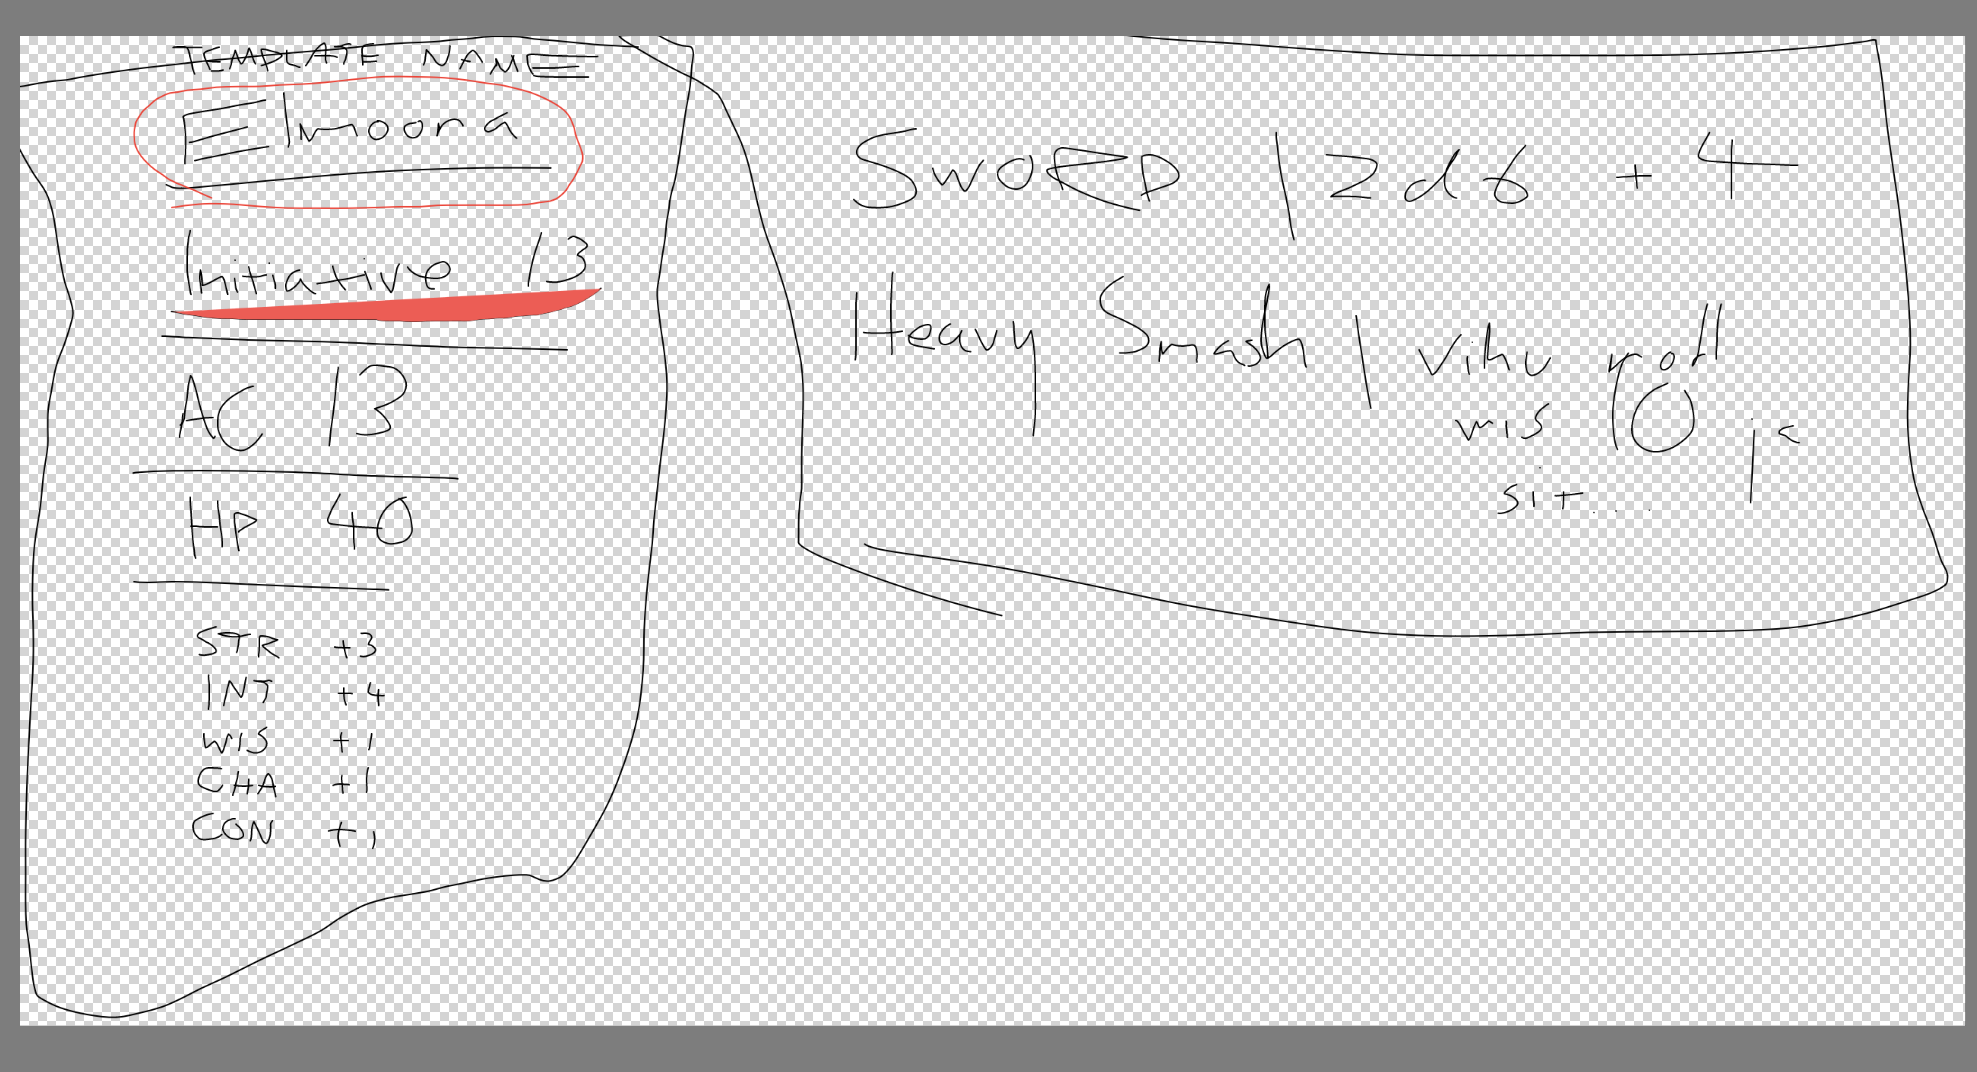 TEMPLATE NAME
Elmoora
Initiative 13
AC 13
HP 40
STR +3
INT +4
WIS +1
CHA +1
CON +1
SWORD | 2d6 + 4
Heavy Smash |
wis
sit...